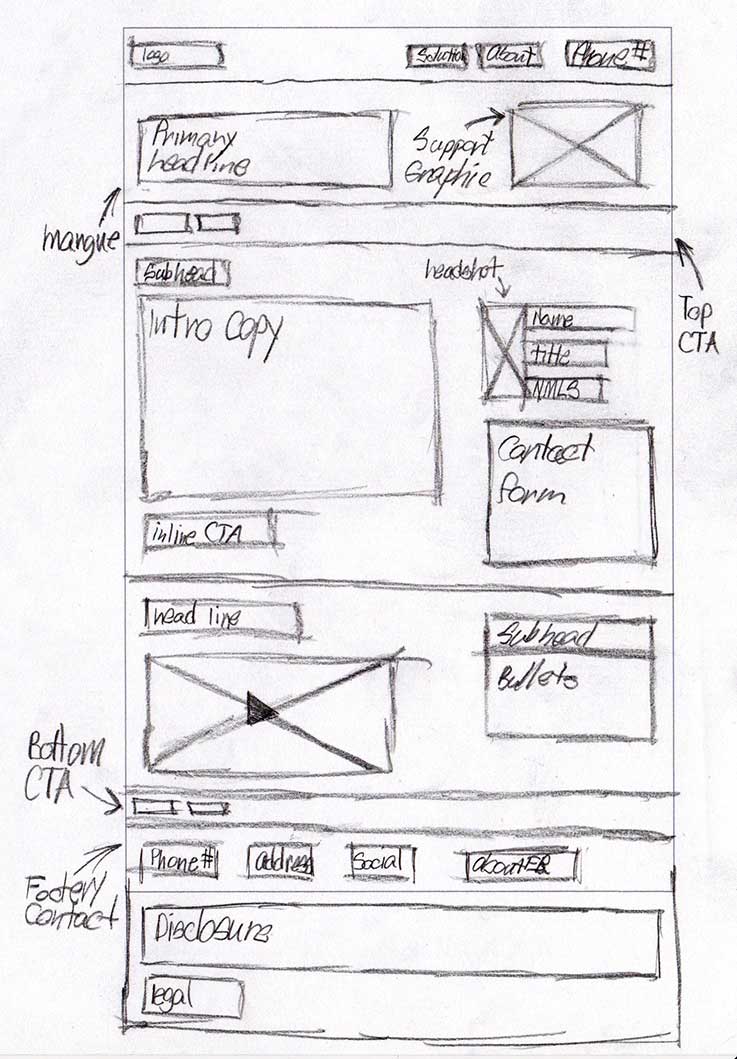 logo
Solution
About
Phone #
Primary
headline
Support
Graphic
mangue
Subhead
headshot
Top
CTA
Intro Copy
Name
title
NMLS
Contact
form
inline CTA
head line
Subhead
Bullets
Bottom
CTA
Phone#
address
Social
Footery
Contact
Disclosure
legal